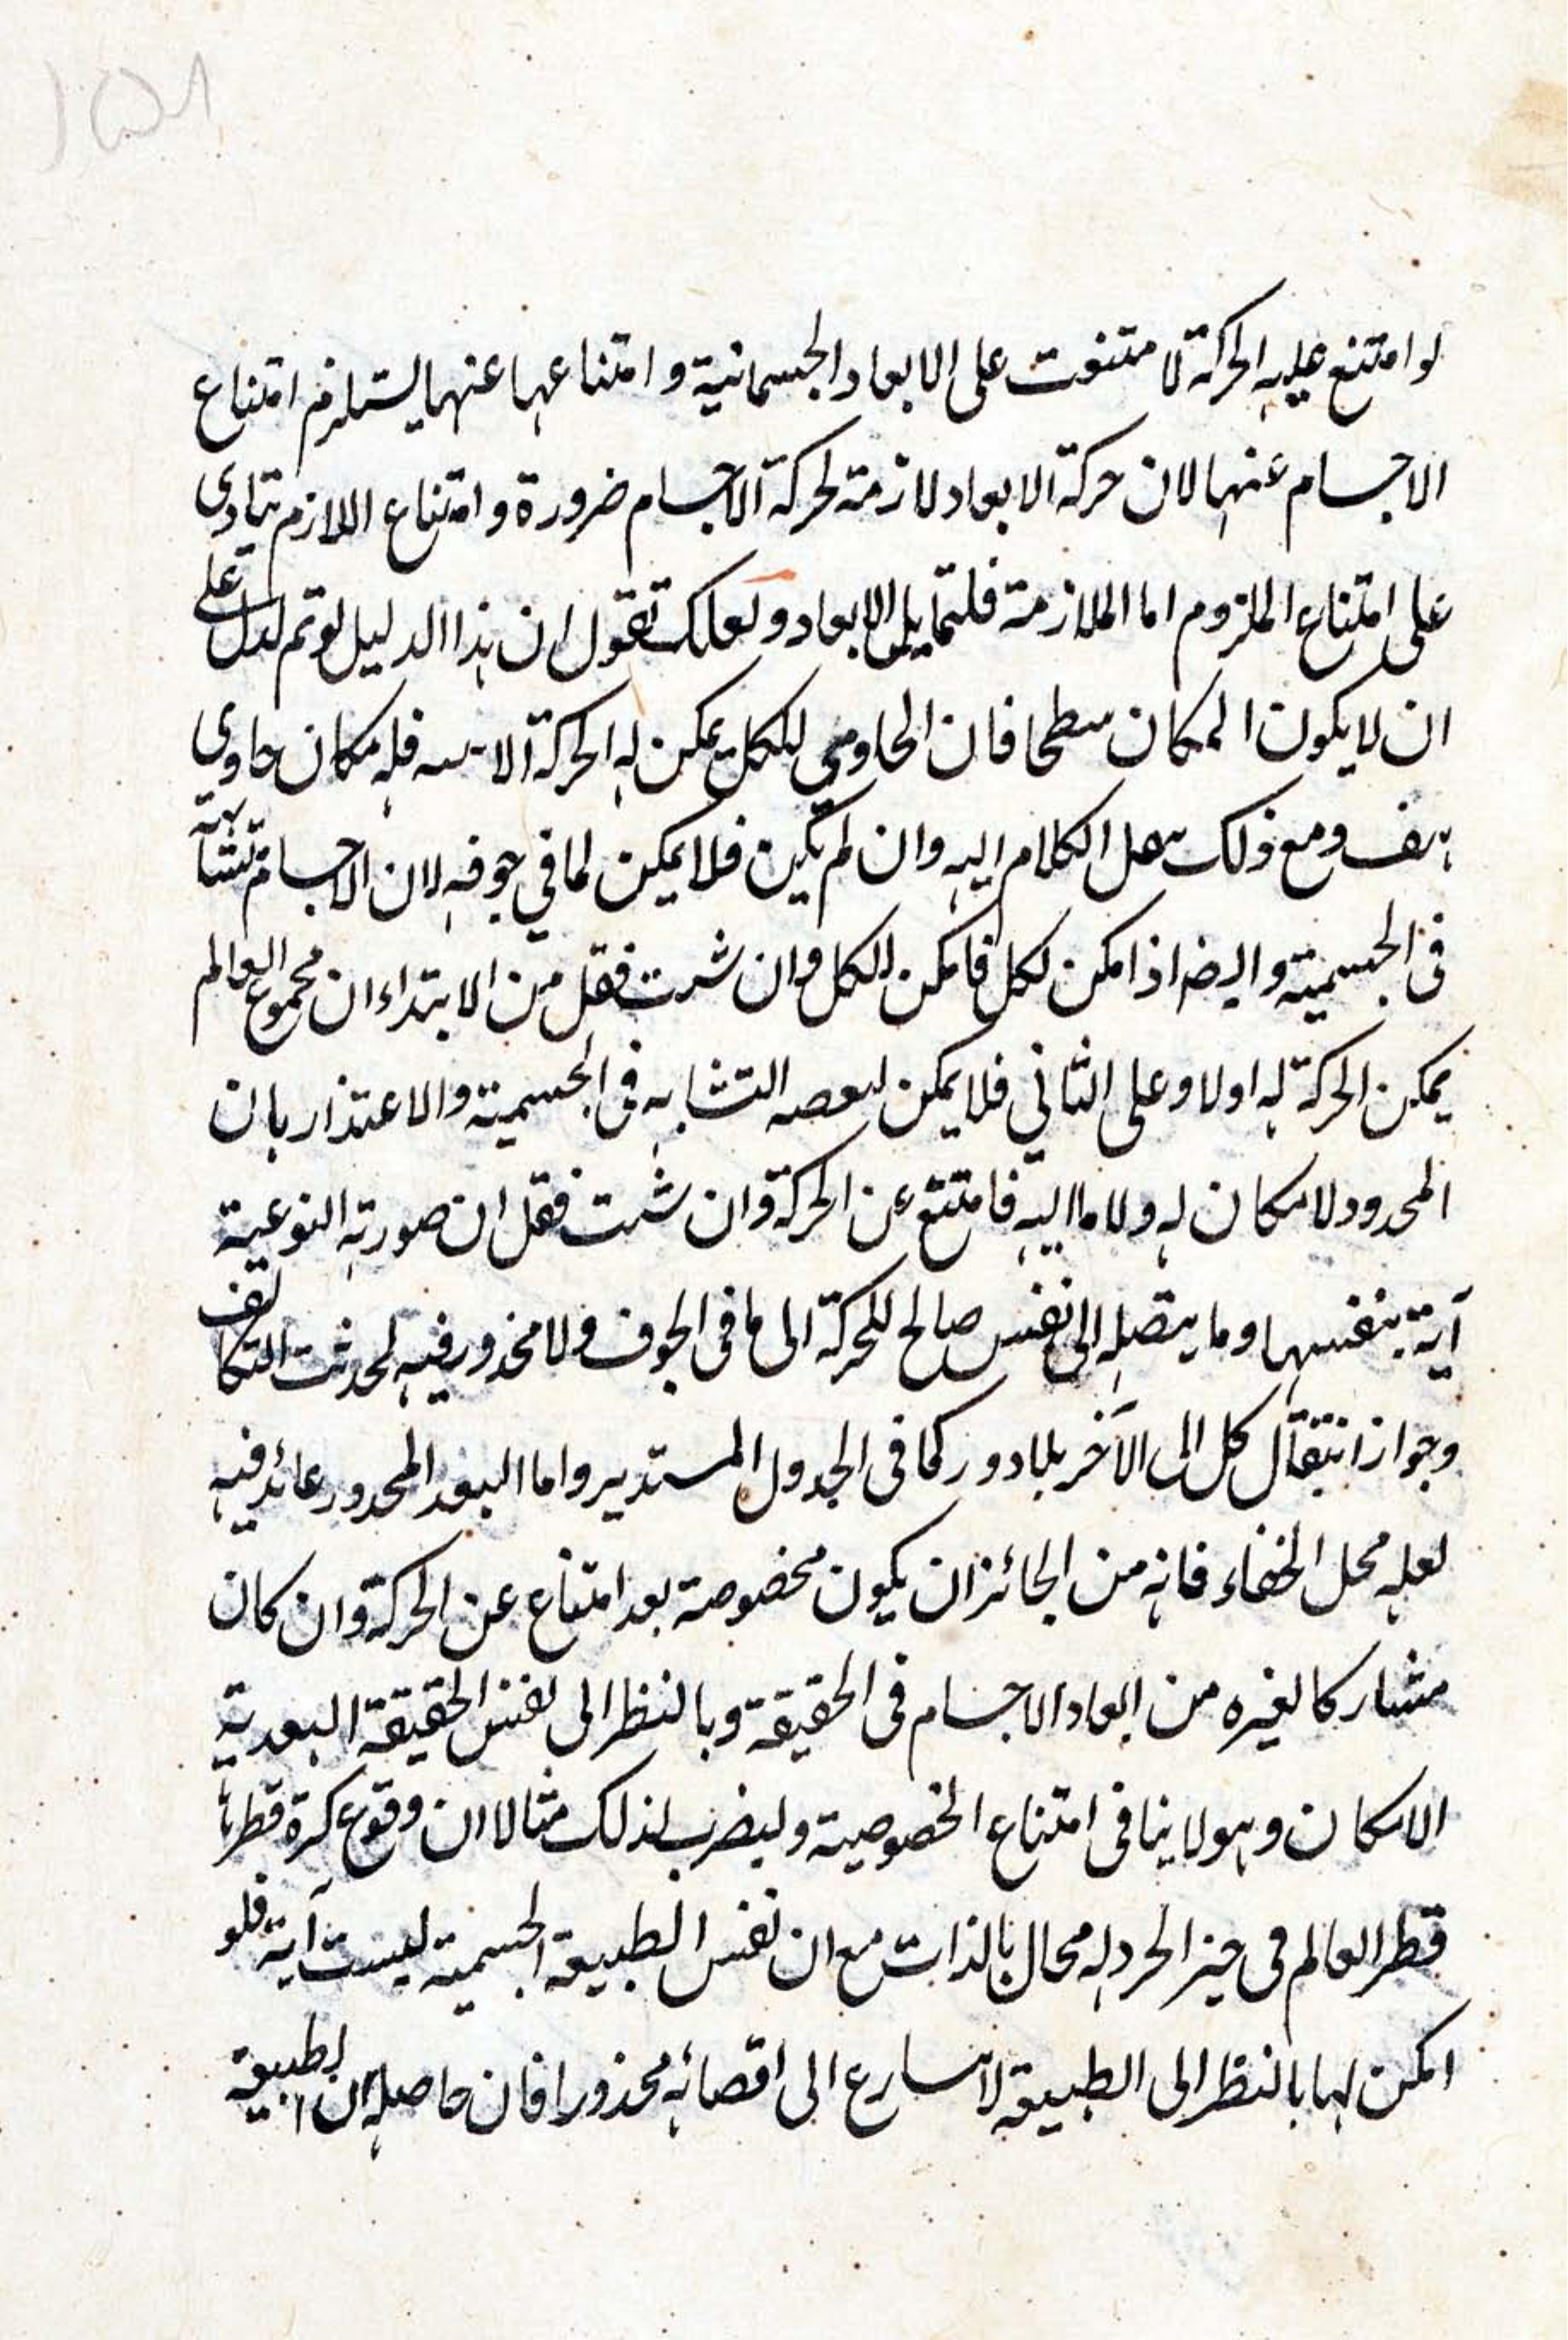 لو امتنع عليه الحركة لامتنعت على الابعاد الجسمانية و امتناعها عنها يستلزم امتناع
الاجسام عنها لان حركة الابعاد لازمة لحركة الاجسام ضرورة و امتناع اللازم يتادى
على امتناع الملزوم اما الملازمة فلتماثل الابعاد و لعلك تقول ان هذا الدليل لو تم لدل على
ان لا يكون المكان سطحا فان الحاوي للكل يمكن له الحركة الاينية فله مكان حاوى
هف و مع ذلك ينقل الكلام اليه وان لم يكن فلا يمكن لما في جوفه لان الاجسام متشابهة
فى الجسمية و ايضا اذا امكن لكل فامكن للكل وان شئت فقل من الابتداء ان مجموع العالم
يمكن الحركة له اولا و على الثاني فلا يمكن لبعضه التشابه فى الجسمية والاعتذار بان
المحدود لا مكان له ولا ما اليه فامتنع عن الحركة وان شئت فقل ان صورته النوعية
آية بنفسها وما يتصله الى نفس صالح للحركة الى ما فى الجوف ولا محذور فيه لحدوث التكاثف
وجواز انتقال كل الى الآخر بلا دور كما فى الجدول المستدير واما البعد المحدود عائد فيه
لعله محل الخفاء فانه من الجائز ان يكون مخصوصة بعد امتناع عن الحركة وان كان
مشاركا لغيره من ابعاد الاجسام فى الحقيقة و بالنظر الى نفس الحقيقة البعدية
الامكان و هو لا ينافى امتناع الخصوصية و ليضرب لذلك مثالا ان وقوع كرة قطرها
قطر العالم فى حيز الخردله محال بالذات مع ان نفس الطبيعة الجسمية ليست آية فلو
امكن لها بالنظر الى الطبيعة لا يسارع الى اقصائه محذورا فان حاصله ان الطبيعة